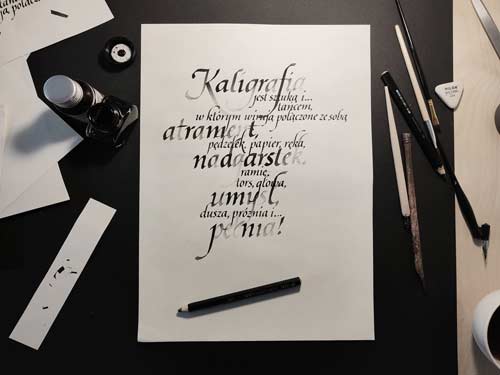 Kaligrafia
jest sztuką i...
tańcem,
w którym wirują połączone ze sobą
atrament,
pędzelek, papier, ręka,
nadgarstek,
ramię,
tors, głowa,
umysł,
dusza, próżnia i...
pełnia!
MILAN